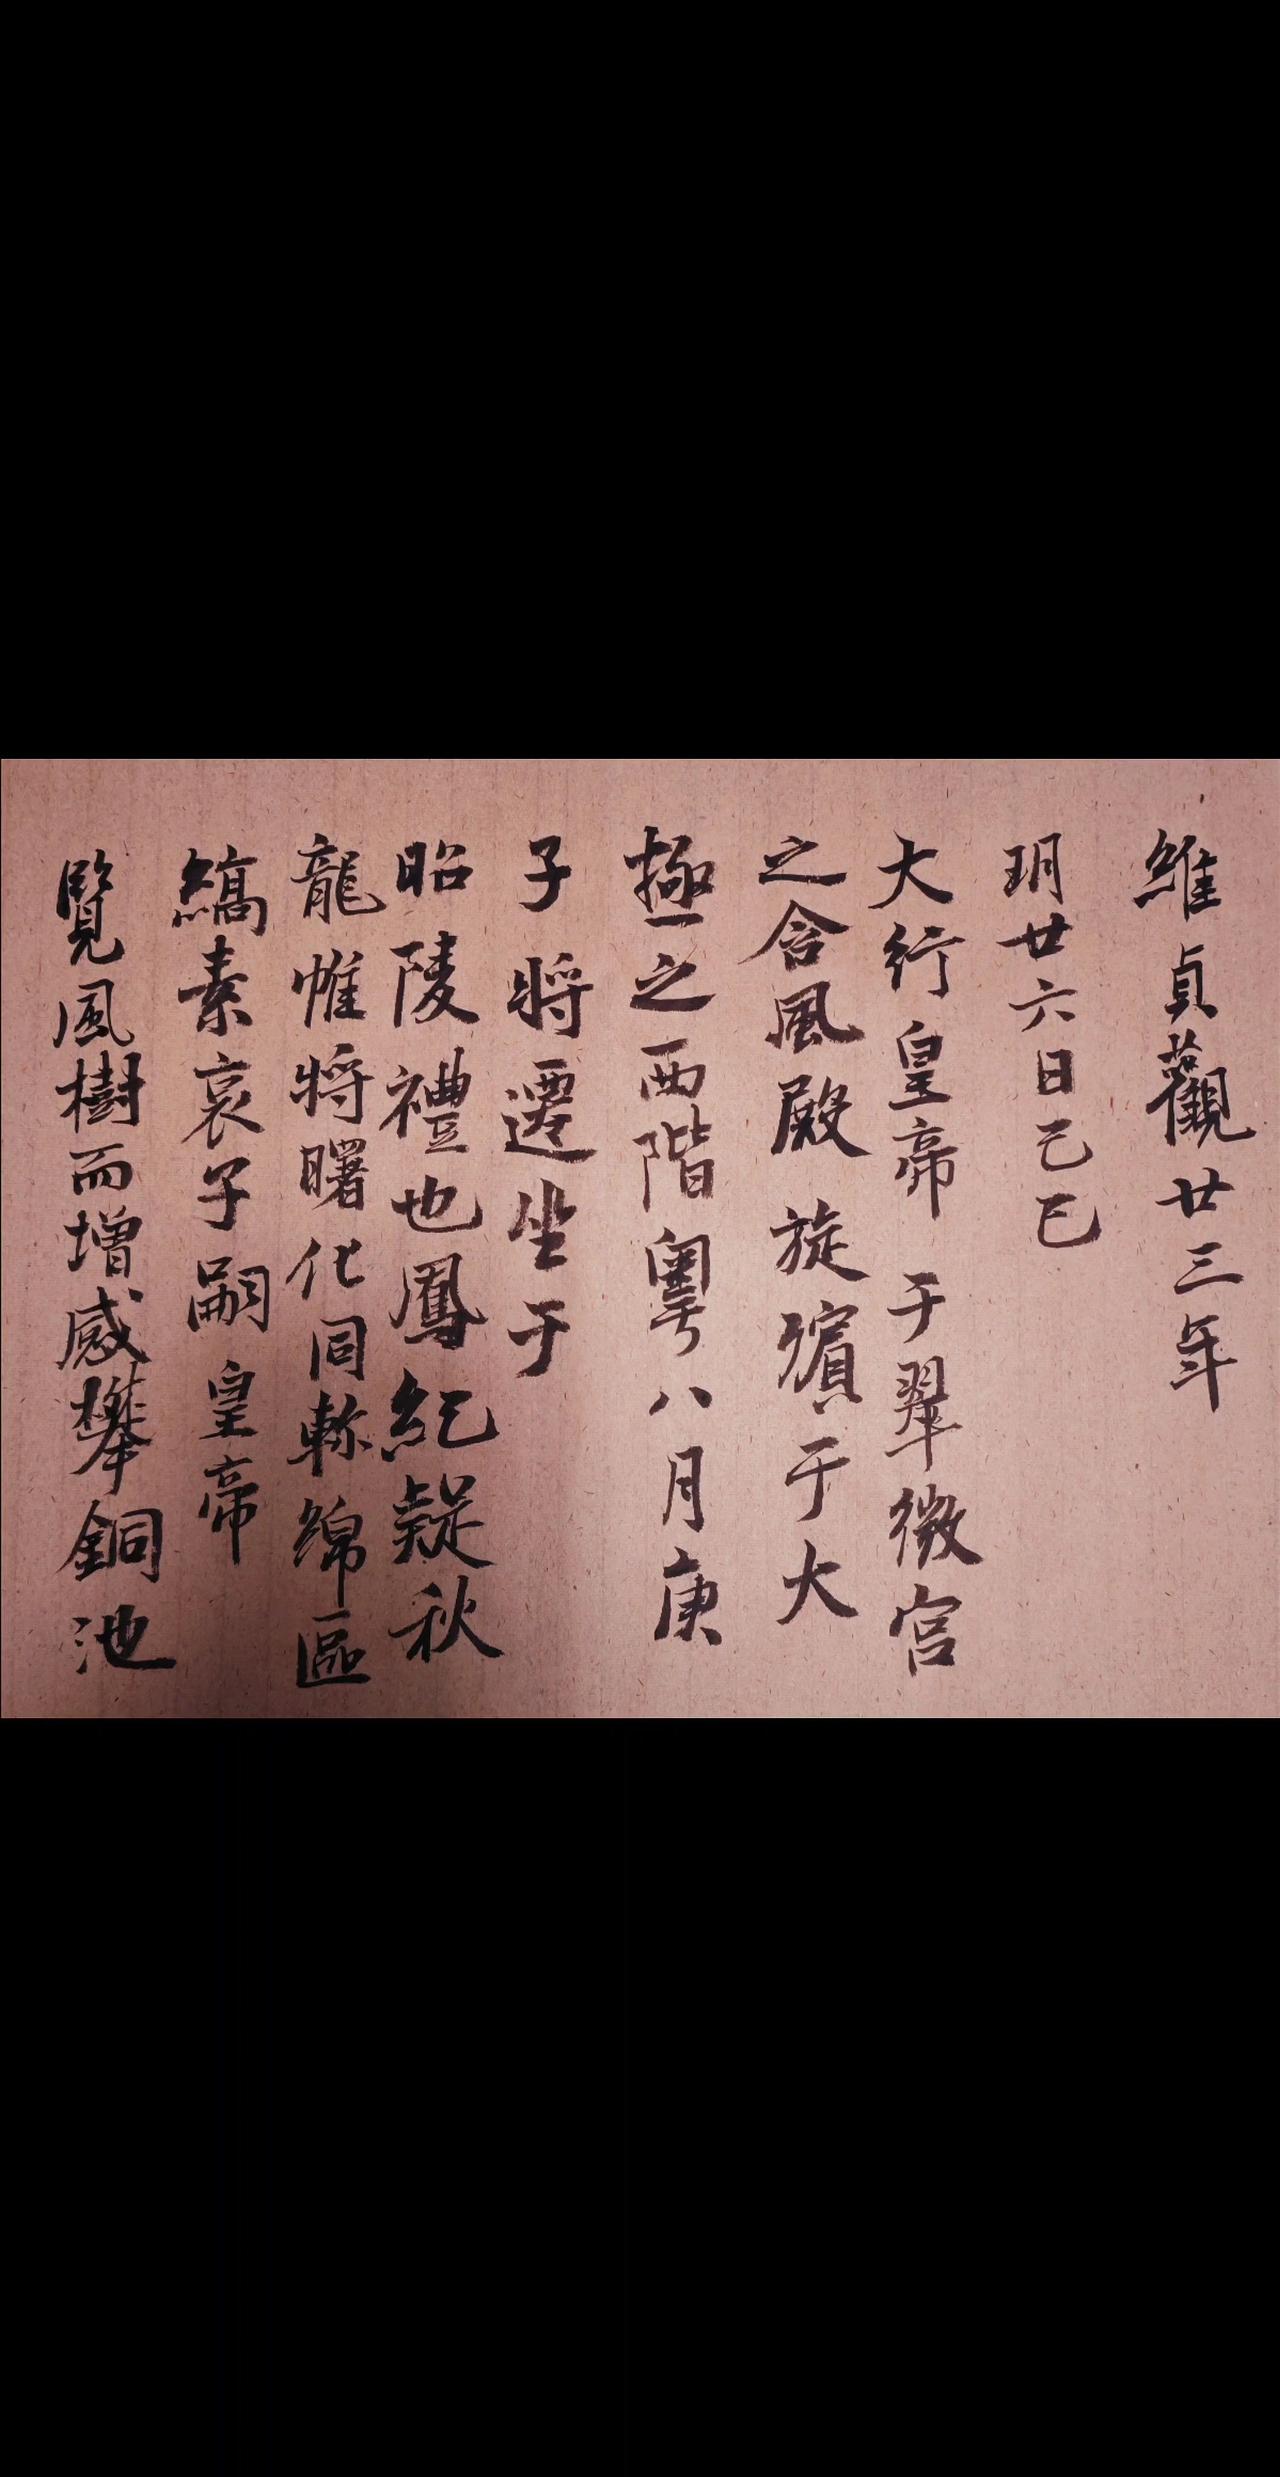 維貞觀廿三年
玥廿六日己巳
大行皇帝于翠微宮
之含風殿旋殯于大
極之西階粵八月庚
子將遷坐于
昭陵禮也鳳紀疑秋
龍帷將曙化同軫綿區
縞素哀子嗣皇帝
覽風樹而增感攀銅池